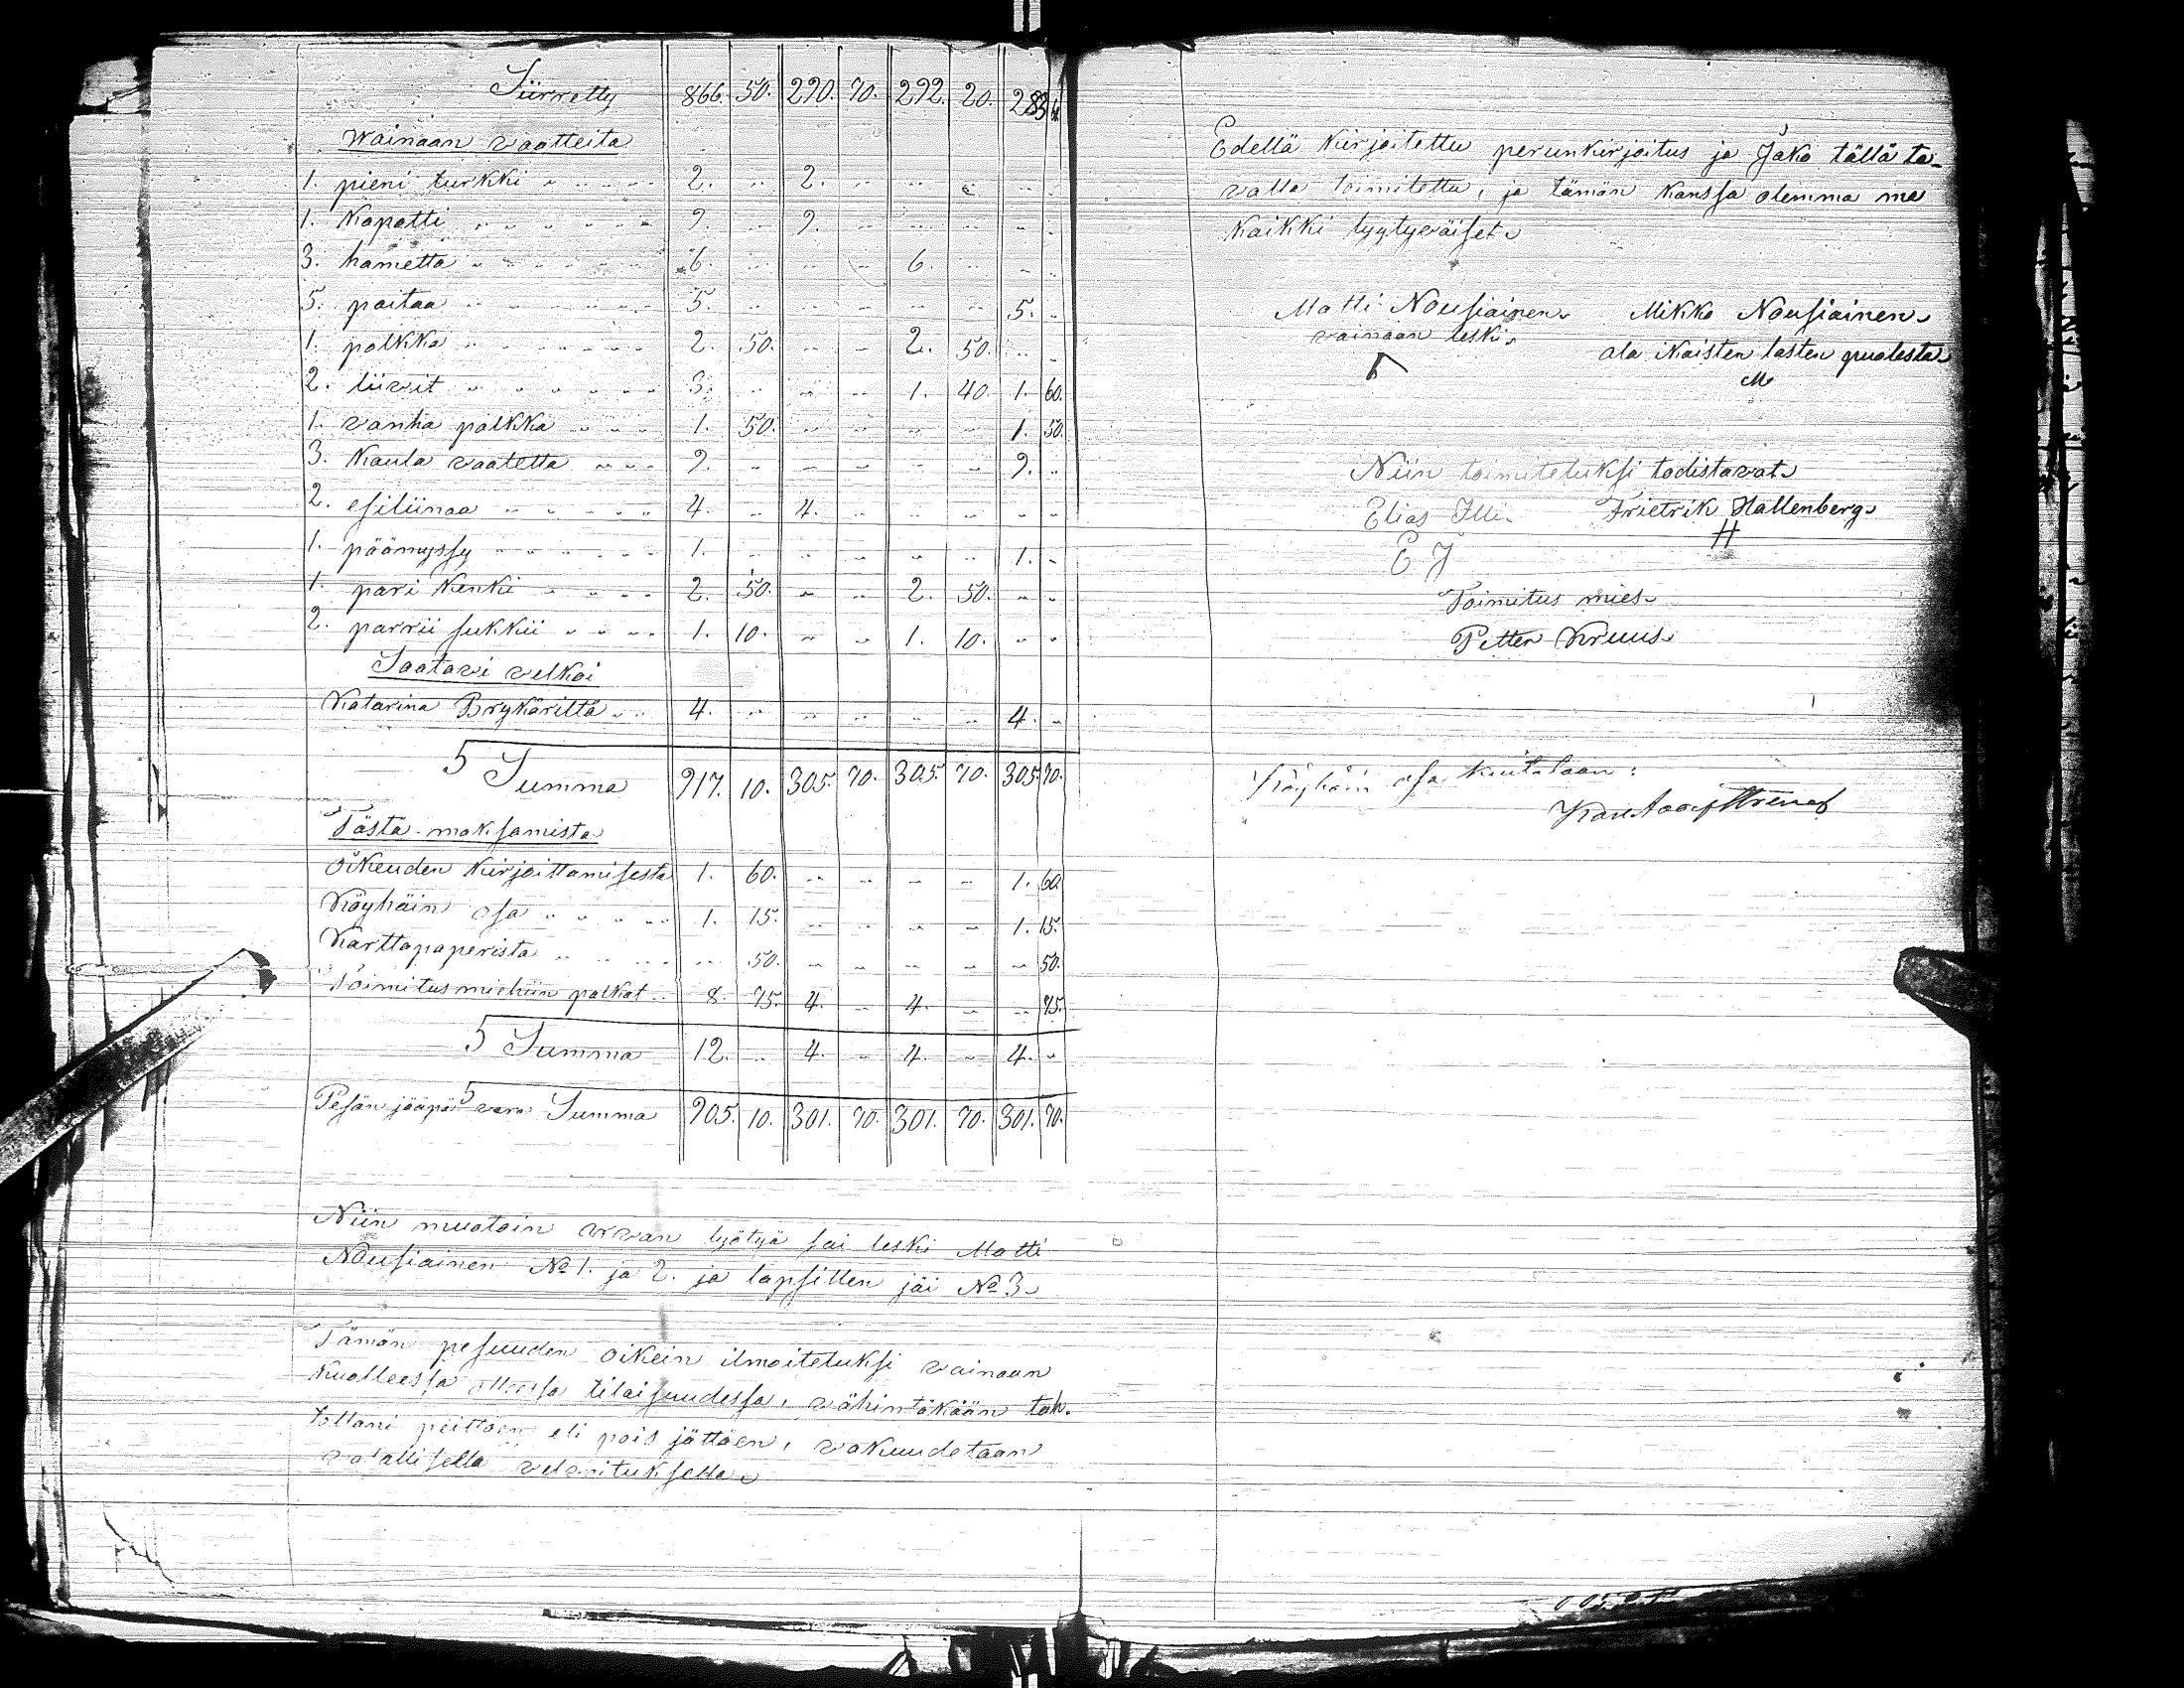 Siirretty 866. 50. 290. 70. 292. 20. 283
Wainaan vaatteita
1. pieni turkki 2. " 2. " " " " "
1. Kapotti 9. " 9. " " " " "
3. hametta 6. " " " 6. " " "
5. paitaa 5. " " " " " 5. "
1. polkka 2. 50. " " 2. 50. " "
2. liivit 3. " " " 1. 40. 1. 60.
1. vanha palkka 1. 50. " " " " 1. 50.
3. Kaula vaatetta 9. " " " " " 9. "
2. esiliinaa 4. " 4. " " " " "
1. päämyssy 1. " " " " " 1. "
1. pari Kenkii 2. 50. " " 2. 50. " "
2. parrii sukkii 1. 10. " " 1. 10. " "
Saatavi velkoi
Katarina Brykäriltä 4. " " " " " 4. "
Summa 917. 10. 305. 70. 305. 70. 305. 70.
Tästä maksamista
Oikeuden Kirjoittamisesta 1. 60. " " " " 1. 60
Köyhäin osa 1. 15. " " " " 1. 15.
Karttapaperista " 50. " " " " " 50.
Toimitusmiehiin palkat 8. 75. 4. " 4. " " 75.
Summa 12. " 4. " 4. " 4. "
Pesän jääpä vara Summa 905. 10. 301. 70. 301. 70. 301. 70.
Niin muotoin arvan lyötyä sai leski Matti
Nousiainen No 1. ja 2. ja lapsillen jäi No 3.
Tämän pesuuden oikein ilmoitetuksi vainaan
Kuolleessa ollessa tilaisuudessa, vähintäkään tah-
tottani peittäen eli pois jättäen, vakuudetaan
valallisella velvoituksella
Edellä Kirjoitettu perunkirjoitus ja Jako tällä ta-
valla toimitettu, ja tämän Kanssa olemma me
Kaikki tyytyväiset
Matti Nousiainen Mikko Nousiainen
vainaan leski ala ikaisten lasten puolesta
M
Niin toimitetuksi todistavat
Elias Illi Frietrik Hallenberg
E J H
Toimitus mies
Petter Kruus
Köyhäin osa kuitataan: